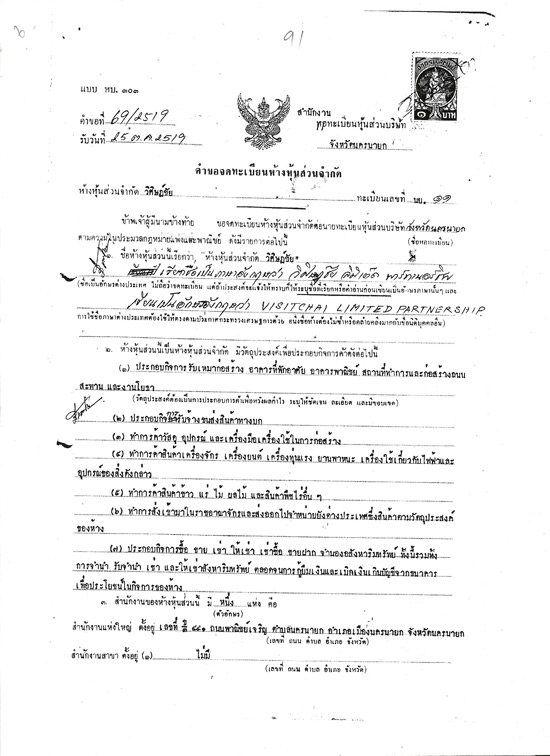 91
แบบ หบ. ๓๐๓
คำขอที่ 69/2519
รับวันที่ 25 ต.ค. 2519
สำนักงาน
ทะเบียนหุ้นส่วนบริษัท
จังหวัดนครนายก
๑ บาท
คำขอจดทะเบียนห้างหุ้นส่วนจำกัด
ห้างหุ้นส่วนจำกัด วิศิษฎ์ชัย ทะเบียนเลขที่ นย. ๑๑
ข้าพเจ้าผู้มีนามข้างท้าย ขอจดทะเบียนห้างหุ้นส่วนจำกัดต่อนายทะเบียนหุ้นส่วนบริษัทจังหวัดนครนายก
ตามความในประมวลกฎหมายแพ่งและพาณิชย์ ดังมีรายการต่อไปนี้ (ชื่อหอทะเบียน)
๑. ชื่อห้างหุ้นส่วนนี้เรียกว่า "ห้างหุ้นส่วนจำกัด วิศิษฎ์ชัย"
เรียกชื่อเป็นภาษาอังกฤษว่า วิศิษฎ์ชัย ลิมิเต็ด พาร์ทเนอร์ชิพ
เขียนเป็นอักษรอังกฤษว่า VISITCHAI LIMITED PARTNERSHIP.
๒. ห้างหุ้นส่วนนี้เป็นห้างหุ้นส่วนจำกัด มีวัตถุประสงค์เพื่อประกอบกิจการค้าดังต่อไปนี้
(๑) ประกอบกิจการรับเหมาก่อสร้าง อาคารที่พักอาศัย อาคารพาณิชย์ สถานที่ทำการและก่อสร้างถนน
สะพาน และงานโยธา
(วัตถุประสงค์ต้องเป็นการประกอบการค้าเพื่อหวังผลกำไร ระบุให้ชัดเจน ละเอียด และมีขอบเขต)
(๒) ประกอบกิจการรับจ้างขนส่งสินค้าทางบก
(๓) ทำการค้าวัสดุ อุปกรณ์ และเครื่องมือเครื่องใช้ในการก่อสร้าง
(๔) ทำการค้าสินค้าเครื่องจักร เครื่องยนต์ เครื่องทุ่นแรง ยานพาหนะ เครื่องใช้เกี่ยวกับไฟฟ้าและ
อุปกรณ์ของสิ่งดังกล่าว
(๕) ทำการค้าสินค้าข้าว แร่ ไม้ ผลไม้ และสินค้าพืชไร่อื่น ๆ
(๖) ทำการสั่งเข้ามาในราชอาณาจักรและส่งออกไปจำหน่ายยังต่างประเทศซึ่งสินค้าตามวัตถุประสงค์
ของห้าง
(๗) ประกอบกิจการซื้อ ขาย เช่า ให้เช่า เช่าซื้อ ขายฝาก จำนองอสังหาริมทรัพย์ ทั้งนี้รวมทั้ง
การจำนำ รับจำนำ เช่า และให้เช่าสังหาริมทรัพย์ ตลอดจนการกู้ยืมเงินและเบิกเงินเกินบัญชีจากธนาคาร
เพื่อประโยชน์ในกิจการของห้าง
๓. สำนักงานของห้างหุ้นส่วนนี้ มี หนึ่ง แห่ง คือ
(ตัวอักษร)
สำนักงานแห่งใหญ่ ตั้งอยู่ เลขที่ ถนนพาณิชย์เจริญ ตำบลนครนายก อำเภอเมืองนครนายก จังหวัดนครนายก
(เลขที่ ถนน ตำบล อำเภอ จังหวัด)
สำนักงานสาขา ตั้งอยู่ (๑) ไม่มี
(เลขที่ ถนน ตำบล อำเภอ จังหวัด)